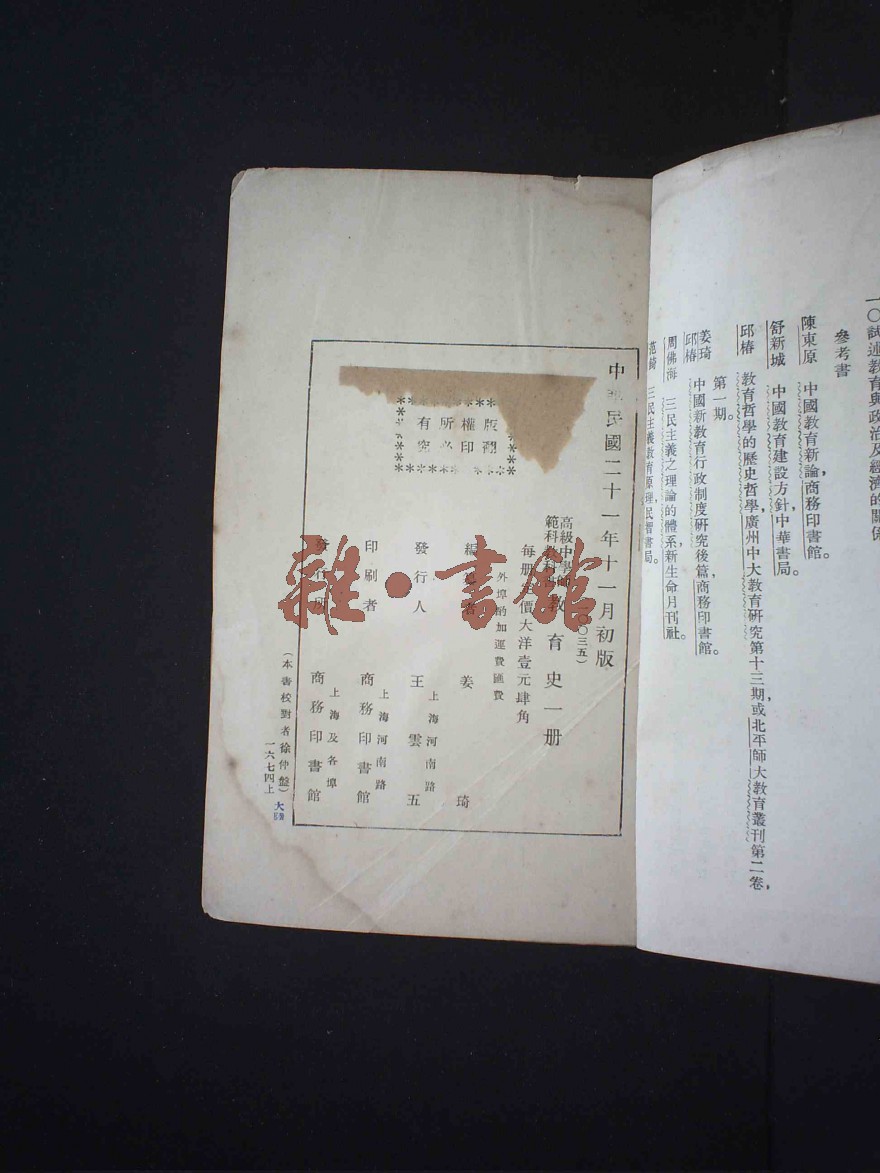 一〇試述教育與政治及經濟的關係
參考書
陳東原　中國教育新論，商務印書館。
舒新城　中國教育建設方針，中華書局。
邱椿　教育哲學的歷史哲學，廣州中大教育研究第十三期，或北平師大教育叢刊第二卷，
第一期。
姜琦
邱椿　中國新教育行政制度研究後篇，商務印書館。
周佛海　三民主義之理論的體系，新生命月刊社。
范錡　三民主義教育原理，民智書局。
中華民國二十一年十一月初版
（一〇〇三五）
高級中學師
範科教科書　教育史一册
每册定價大洋壹元肆角
外埠酌加運費匯費
版權所有
翻印必究
編著者　姜琦
發行人　王雲五
上海河南路
印刷者　商務印書館
上海河南路
發行所　商務印書館
上海及各埠
（本書校對者徐仲盤）
一六七四上
雜·書館